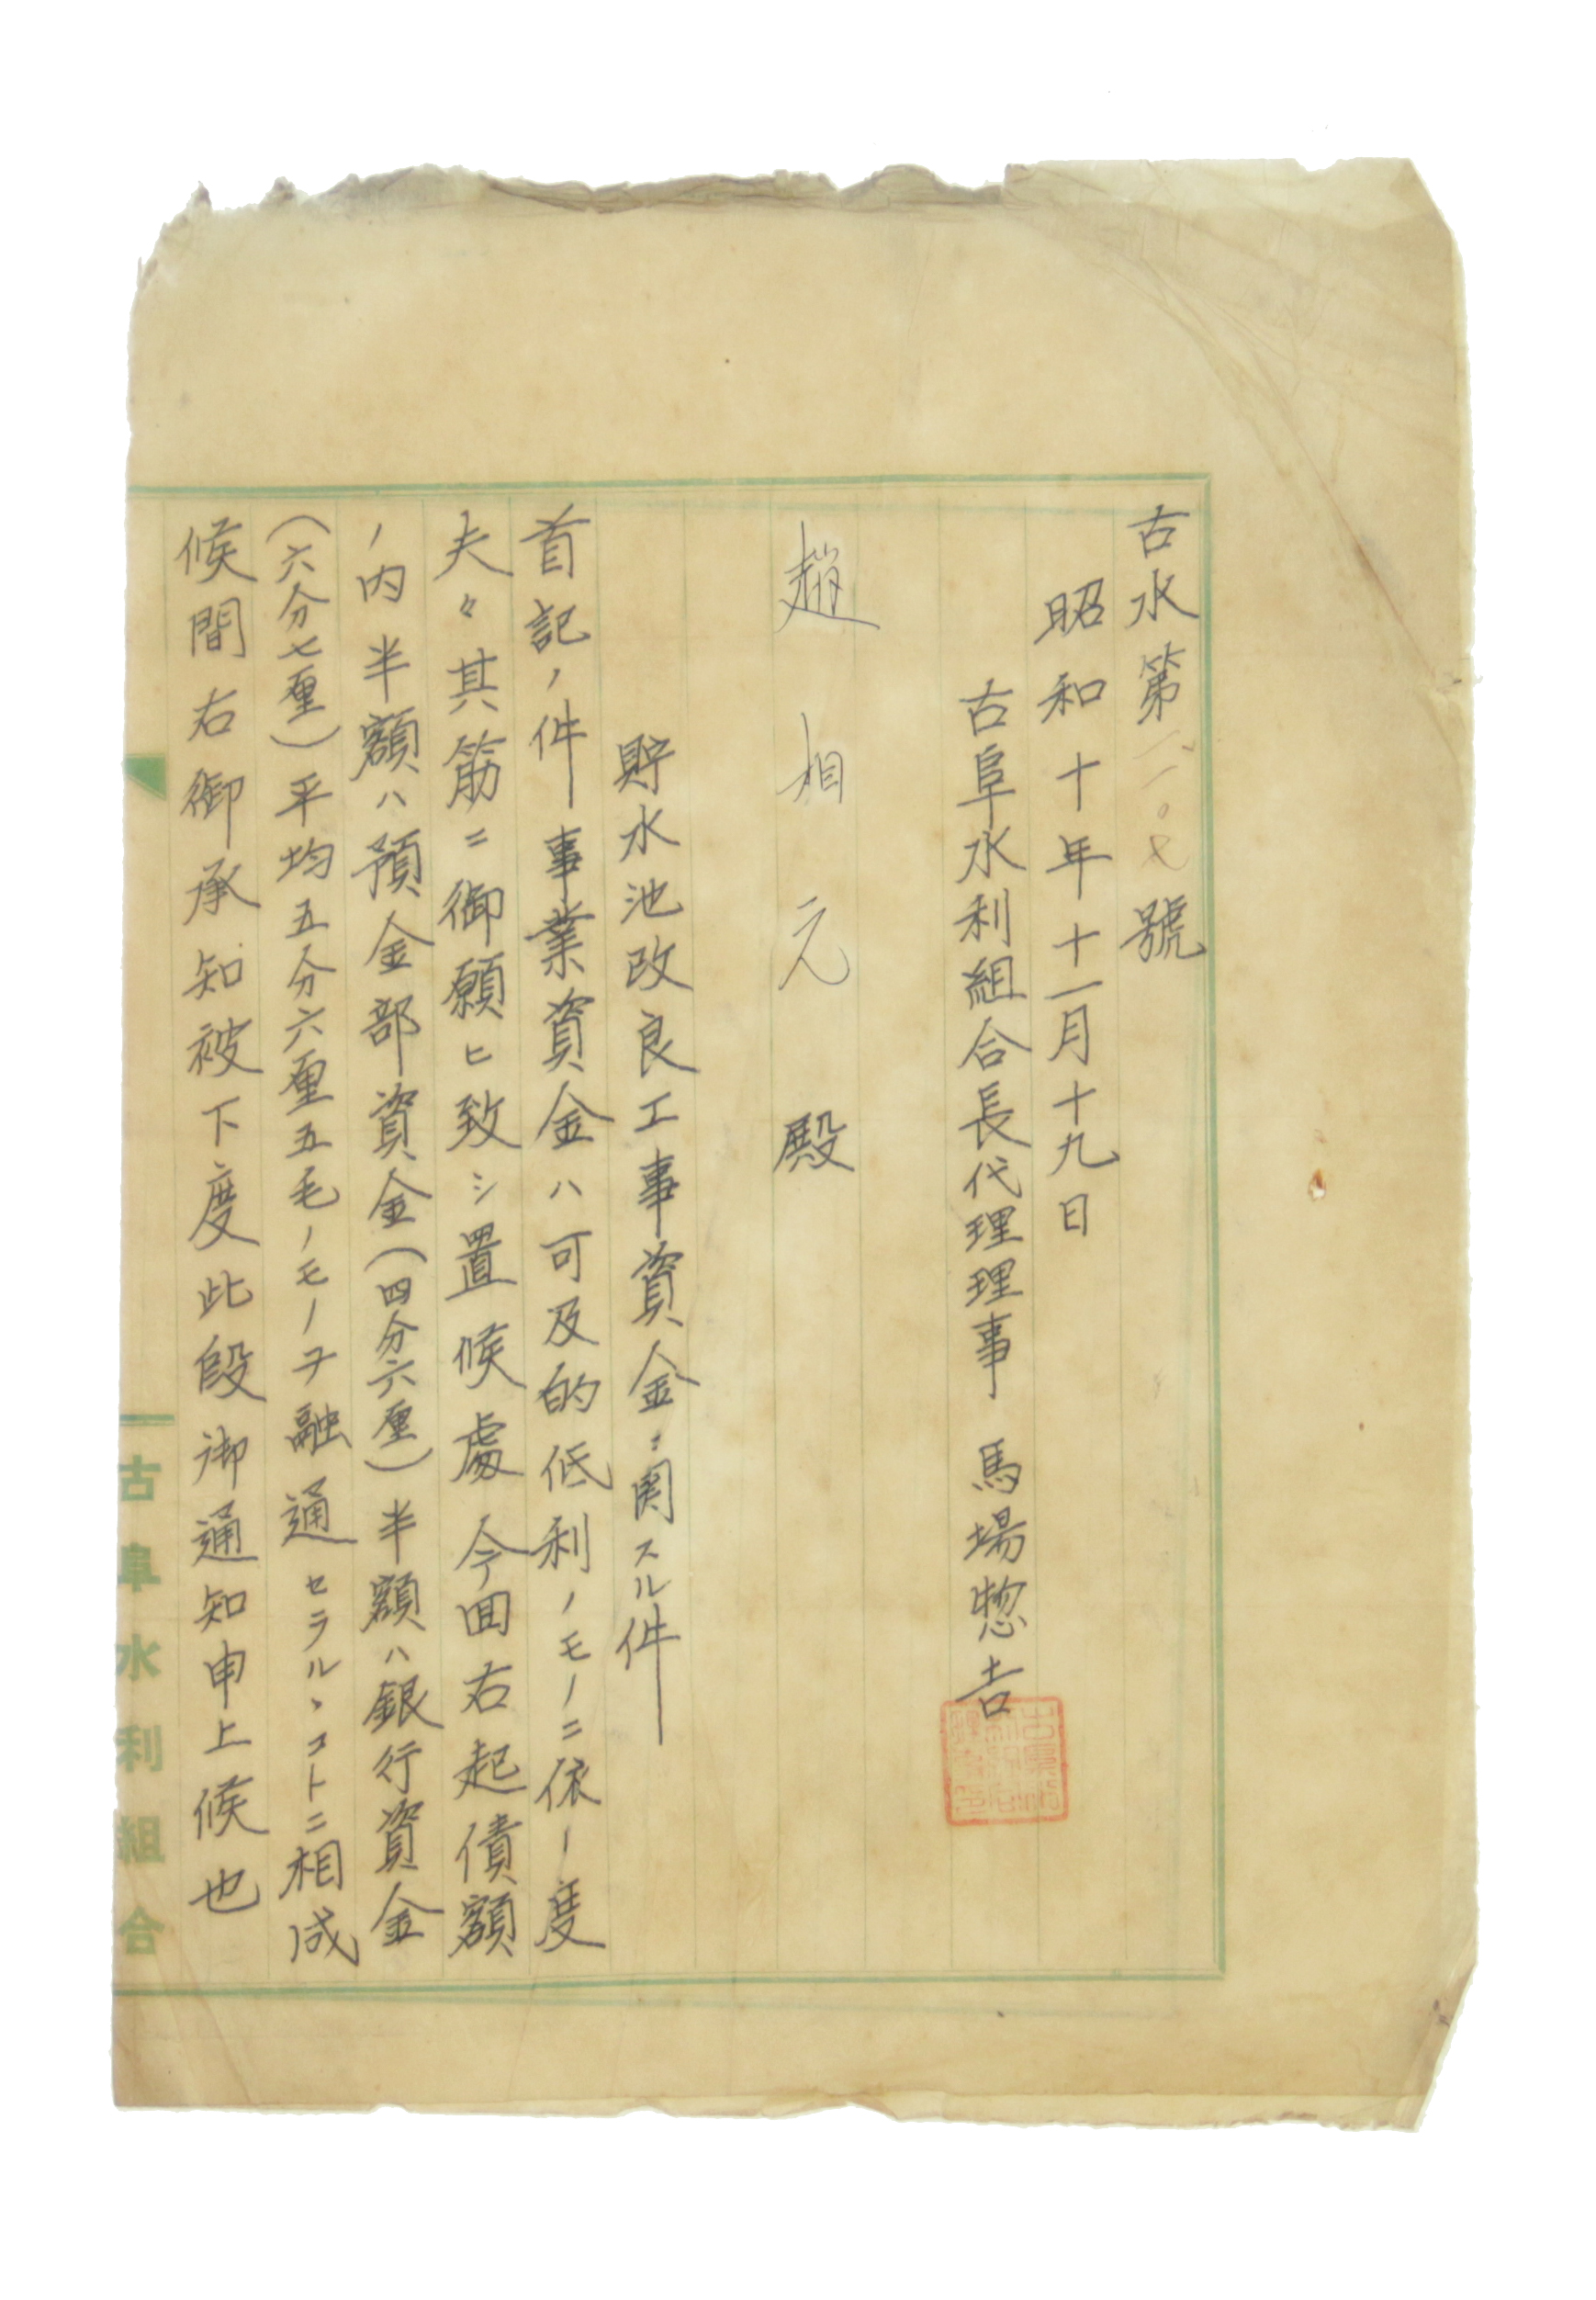 古水第一一〇七號
昭和十年十一月十九日
古阜水利組合長代理理事 馬場惣吉
趙相元殿
貯水池改良工事資金ニ関スル件
首記ノ件事業資金ハ可及的低利ノモノニ依リ度
夫々其筋ニ御願ヒ致シ置候處今回右起債額
ノ内半額ハ預金部資金(四分六厘)半額ハ銀行資金
(六分七厘)平均五分六厘五毛ノモノヲ融通セラルヽコトニ相成
候間右御承知被下度此段御通知申上候也
古阜水利組合